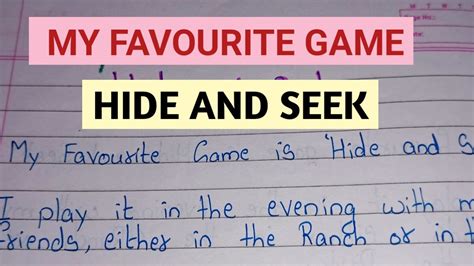 MY FAVOURITE GAME
HIDE AND SEEK
My Favourite Game is 'Hide and S
I play it in the evening with m
friends, either in the Ranch or in t